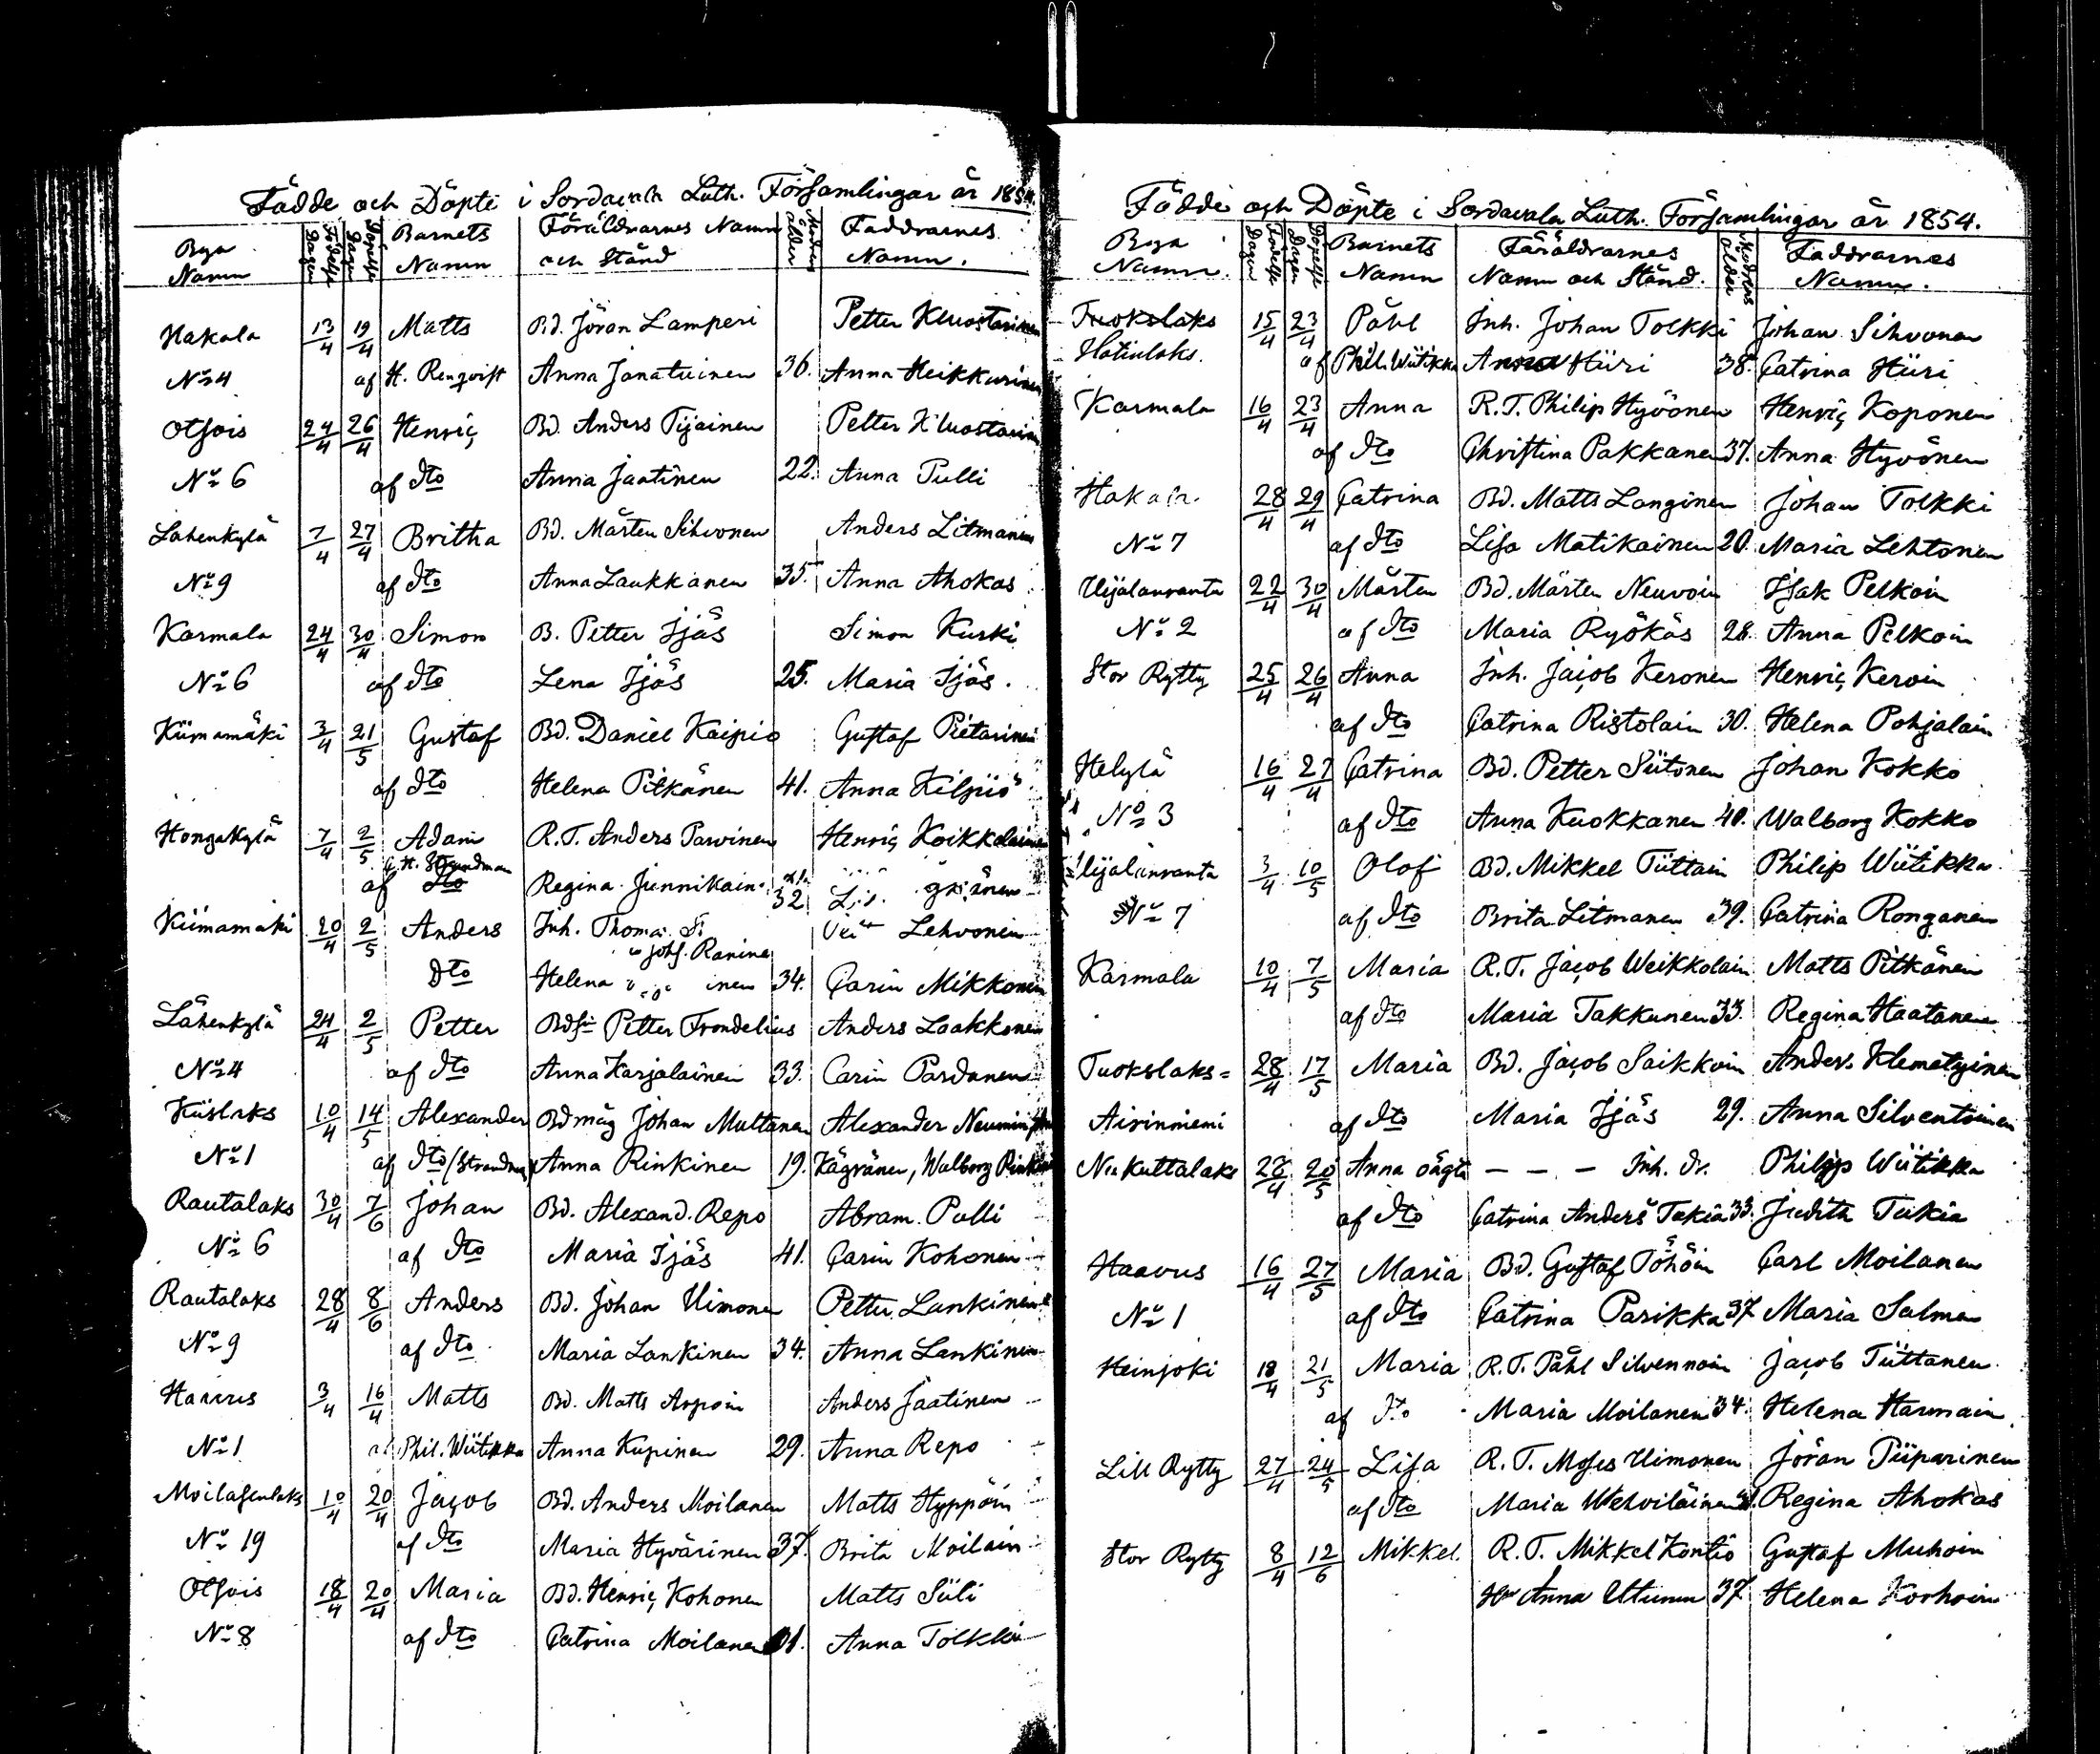 Födde och Döpte i Sordavala Luth. Församlingar år 1854.
Bya Namn Födelse Dagen Döpelse Dagen Barnets Namn Föräldrarnes Namn och Stånd Modrens ålder Faddrarnes Namn.
Hakala 13/4 19/4 Matts Bd. Jöran Lamperi Petter Kluostarinen
No 4 af H. Renqvist Anna Janatuinen 36. Anna Heikkurinen
Otsois 24/4 26/4 Henric Bd. Anders Tijainen Petter Kluostarinen
No 6 af dto Anna Jaatinen 22. Anna Pulli
Lahenkylä 7/4 27/4 Britha Bd. Mårten Sihvonen Anders Litmanen
No 9 af dto Anna Laukkanen 35. Anna Ahokas
Karmala 24/4 30/4 Simon B. Petter Ijäs Simon Kurki
No 6 af dto Lena Ijäs 25. Maria Ijäs.
Kiimamäki 3/4 21/5 Gustaf Bd. Daniel Kaipio Gustaf Pietarinen
af dto Helena Pitkänen 41. Anna Kilpiö
Hongakylä 7/4 2/5 Adam R.T. Anders Parvinen Henric Koikkalainen
af C. H. Strandman Regina Junnikain 32
Kiimamäki 20/4 2/5 Anders Inh. Thomas Lehvonen
Johs. Ranine
Dto Helena 34. Carin Mikkonen
Lähenkylä 24/4 2/5 Petter Petter Frondelius Anders Laakkonen
No 4 af dto Anna Karjalainen 33. Carin Pardanen
Kiislaks 10/4 14/5 Alexander Bdmåg Johan Multanen Alexander
No 1 af dto (Strandman) Anna Rinkinen 19. Kägränen, Walborg Rinkinen
Rautalaks 30/4 7/6 Johan Bd. Alexand. Repo Abram. Pulli
No 6 af dto Maria Ijäs 41. Carin Kohonen
Rautalaks 28/4 8/6 Anders Bd. Johan Uimonen Petter Lankinen
No 9 af dto Maria Lankinen 34. Anna Lankinen
Haavus 3/4 16/4 Matts Bd. Matts Arpoin Anders Jaatinen
No 1 af Phil. Wiitikka Anna Kupinen 29. Anna Repo
Moilasenlaks 10/4 20/4 Jacob Bd. Anders Moilanen Matts Hyppöin
No 19 af dto Maria Hyvärinen 37. Brita Moilain
Otsois 18/4 20/4 Maria Bd. Henric Kohonen Matts Siili
No 8 af dto Catrina Moilanen Anna Tolkki
Födde och Döpte i Sordavala Luth. Församlingar år 1854.
Bya Namn. Födelse Dagen Döpelse Dagen Barnets Namn Föräldrarnes Namn och Stånd. Modrens ålder Faddrarnes Namn.
Tuokslaks 15/4 23/4 Påhl Inh. Johan Tolkki Johan Sihvonen
Hotinlaks. af Phil. Wiitikka Anna Hiiri 38. Catrina Hiiri
Karmala 16/4 23/4 Anna R.T. Philip Hyvönen Henric Koponen
af dto Christina Pakkanen 37. Anna Hyvönen
Hakala 28/4 29/4 Catrina Bd. Matts Langinen Johan Tolkki
No 7 af dto Lisa Matikainen 20. Maria Lehtonen
Uijalanranta 22/4 30/4 Mårten Bd. Mårten Neuvoin Isak Pelkoin
No 2 af dto Maria Ryökäs 28. Anna Pelkoin
Stor Rytty 25/4 26/4 Anna Inh. Jacob Keronen Henric Keroin
af dto Catrina Ristolain 30. Helena Pohjalain
Helylä 16/4 27/4 Catrina Bd. Petter Siitonen Johan Kokko
No 3 af dto Anna Kuokkanen 40. Walborg Kokko
Uijalanranta 3/4 10/5 Olof Bd. Mikkel Tiittain Philip Wiitikka
No 7 af dto Brita Litmanen 39. Catrina Ronganen
Karmala 10/4 7/5 Maria R.T. Jacob Weikkolain Matts Pitkänen
af dto Maria Takkunen 33. Regina Haatanen
Tuokslaks= 28/4 17/5 Maria Bd. Jacob Saikkoin Anders Klemetyinen
Airinniemi af dto Maria Ijäs 29. Anna Silventoinen
Kuttalaks 28/4 20/5 Anna oägta — — — Inh. dr. Philip Wiitikka
af dto Catrina Anders Tukia 33. Judith Tukia
Haavus 16/4 27/5 Maria Bd. Gustaf Töhöin Carl Moilanen
No 1 af dto Catrina Parikka 37 Maria Salmen
Heinjoki 18/4 21/5 Maria R.T. Påhl Silvennoin Jacob Tiittanen
af dto Maria Moilanen 34. Helena Harmain
Lill Rytty 27/4 24/5 Lisa R.T. Moses Uimonen Jöran Piiparinen
af dto Maria Wehviläinen Regina Ahokas
Stor Rytty 8/4 12/6 Mikkel. R.T. Mikkel Kontio Gustaf Muhoin
Anna 37 Helena Korhoin